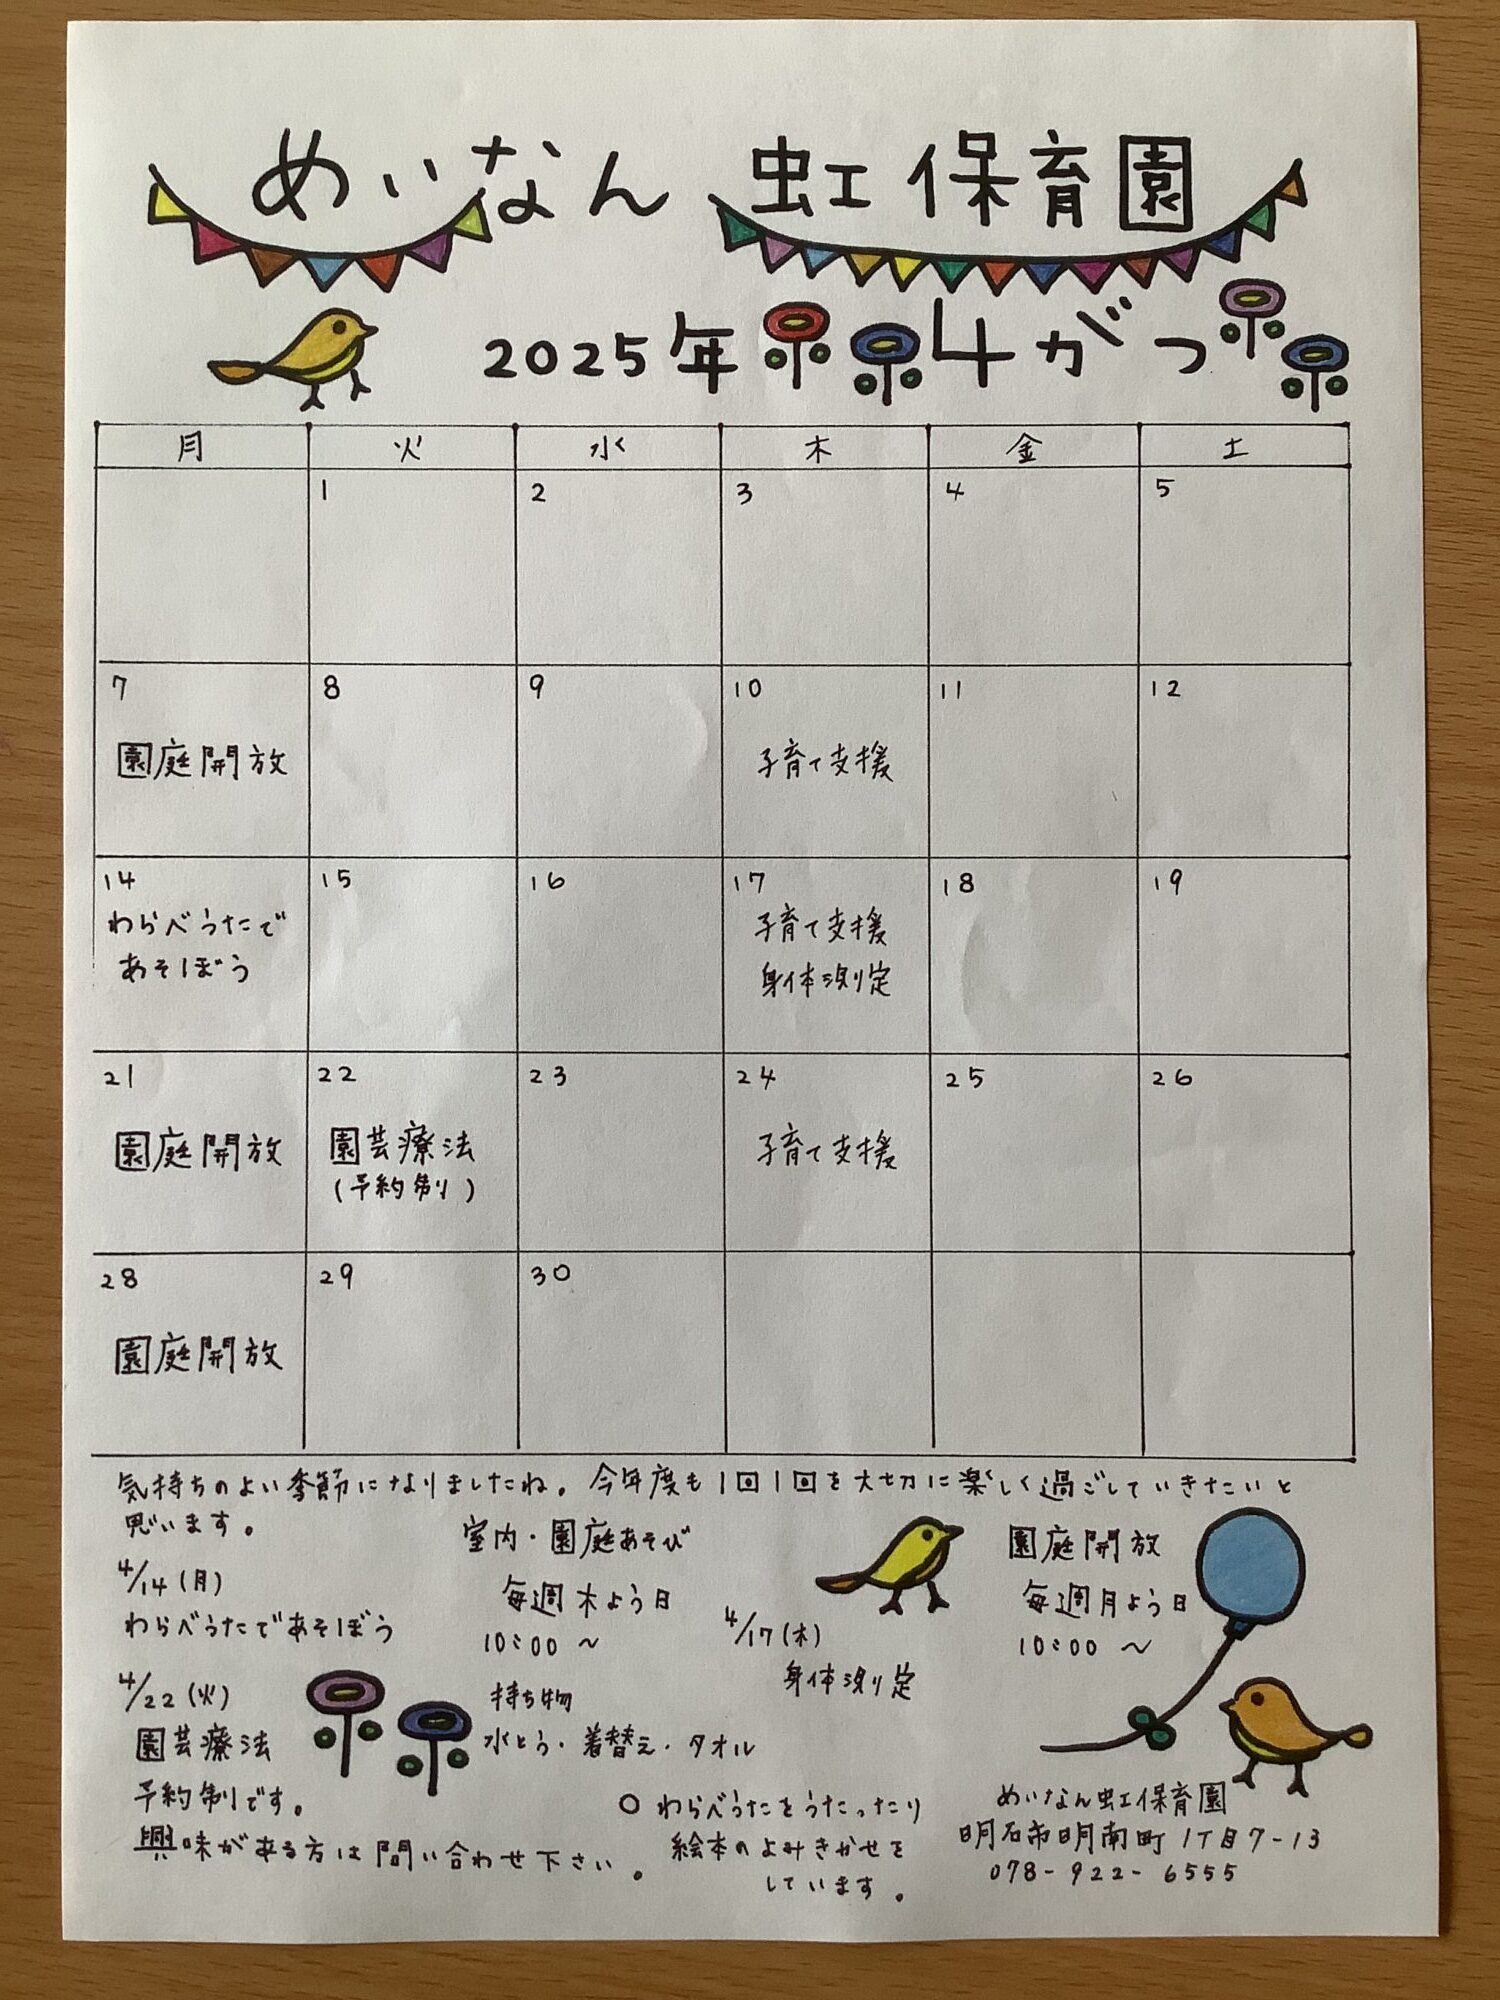 めいなん 虹保育園
2025年 4がつ
月 火 水 木 金 土
1 2 3 4 5
7 8 9 10 11 12
園庭開放 子育て支援
14 15 16 17 18 19
わらべうたで 子育て支援
あそぼう 身体測定
21 22 23 24 25 26
園庭開放 園芸療法 子育て支援
(予約制)
28 29 30
園庭開放
気持ちのよい季節になりましたね。今年度も1回1回を大切に楽しく過ごしていきたいと
思います。
4/14(月)
わらべうたであそぼう
4/22(火)
園芸療法
予約制です。
興味がある方は問い合わせ下さい。
室内・園庭あそび
毎週木よう日
10:00 ~
持ち物
水とう・着替え・タオル
4/17(木)
身体測定
園庭開放
毎週月よう日
10:00 ~
○ わらべうたをうたったり
絵本のよみきかせを
しています。
めいなん虹保育園
明石市明南町1丁目7-13
078-922-6555